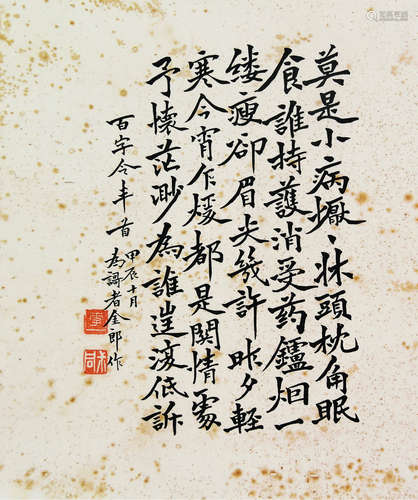 莫是小病懨〻牀頭枕角眠
食誰持護消受药鑪烟一
缕瘦卻眉尖幾許昨夕輕
寒今宵乍煖都是関情處
予懷茫渺為誰遥夜低訴
百字令半首
甲辰十月
為謌者金郎作